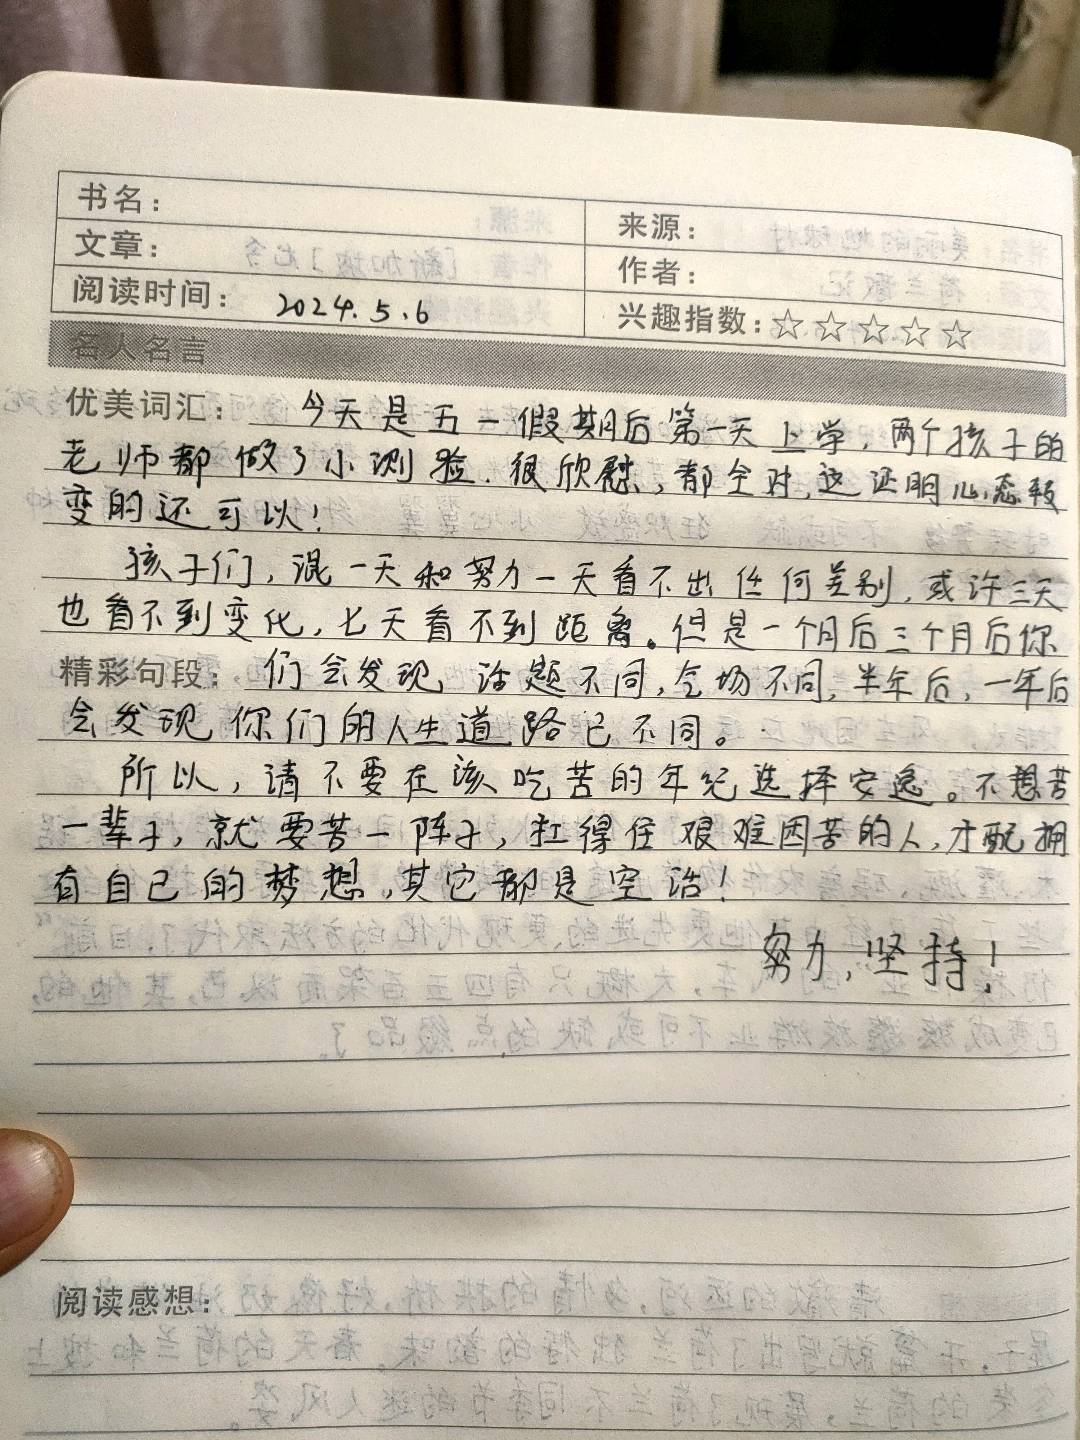 书名：
来源：
文章：
作者：
阅读时间： 2024.5.6
兴趣指数：☆☆☆☆☆
名人名言
优美词汇： 今天是五一假期后第一天上学，两个孩子的
老师都做了小测验．很欣慰，都全对，这证明心态转
变的还可以！
孩子们，混一天和努力一天看不出任何差别，或许三天
也看不到变化，七天看不到距离。但是一个月后三个月后你
精彩句段： 们会发现 话题不同，气场不同，半年后，一年后
会发现你们的人生道路已不同。
所以，请不要在该吃苦的年纪选择安逸。不想苦
一辈子，就要苦一阵子，扛得住艰难困苦的人，才配拥
有自己的梦想，其它都是空话！
努力，坚持！
阅读感想：